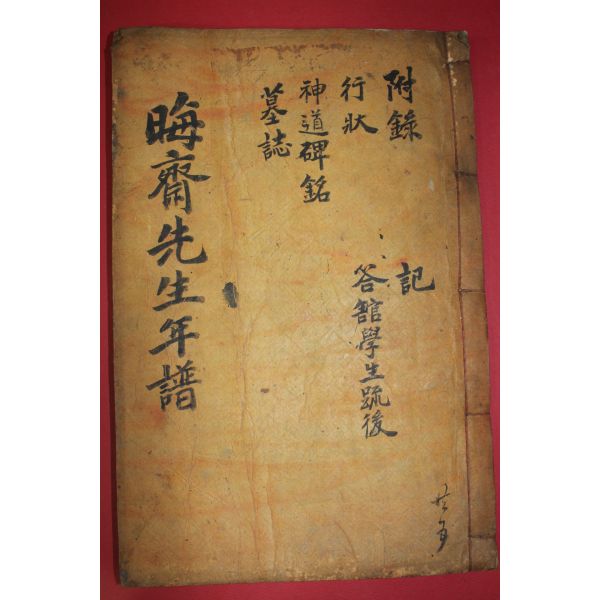 附錄
行狀
神道碑銘
墓誌
記
答館學生疏後
晦齋先生年譜